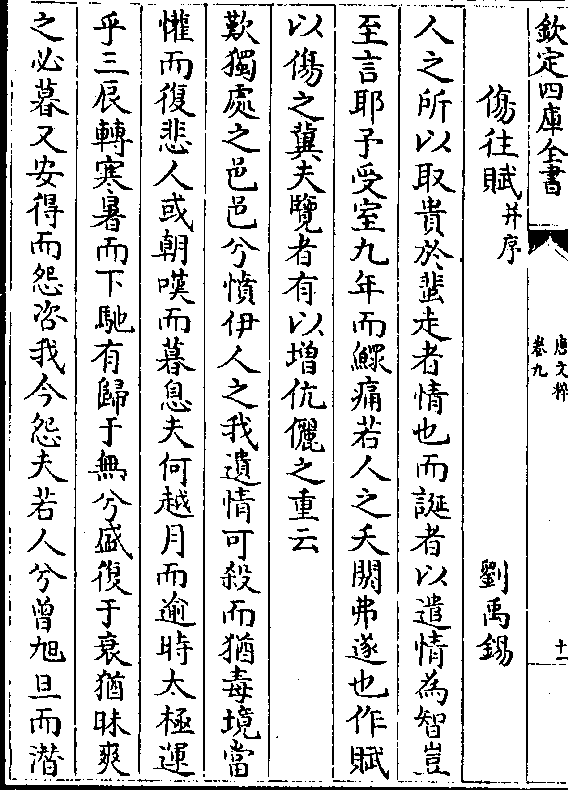 欽定四庫全書
唐文粹
卷九
十一
傷往賦并序
劉禹錫
人之所以取貴於蜚走者情也而誕者以遣情為智豈
至言耶予受室九年而鰥痛若人之夭閼弗遂也作賦
以傷之冀夫覽者有以增伉儷之重云
歎獨處之邑邑兮憤伊人之我遺情可殺而猶毒境當
懽而復悲人或朝嘆而暮息夫何越月而逾時太極運
乎三辰轉寒暑而下馳有歸于無兮盛復于衰猶昧爽
之必暮又安得而怨咨我今怨夫若人兮曾旭旦而潛